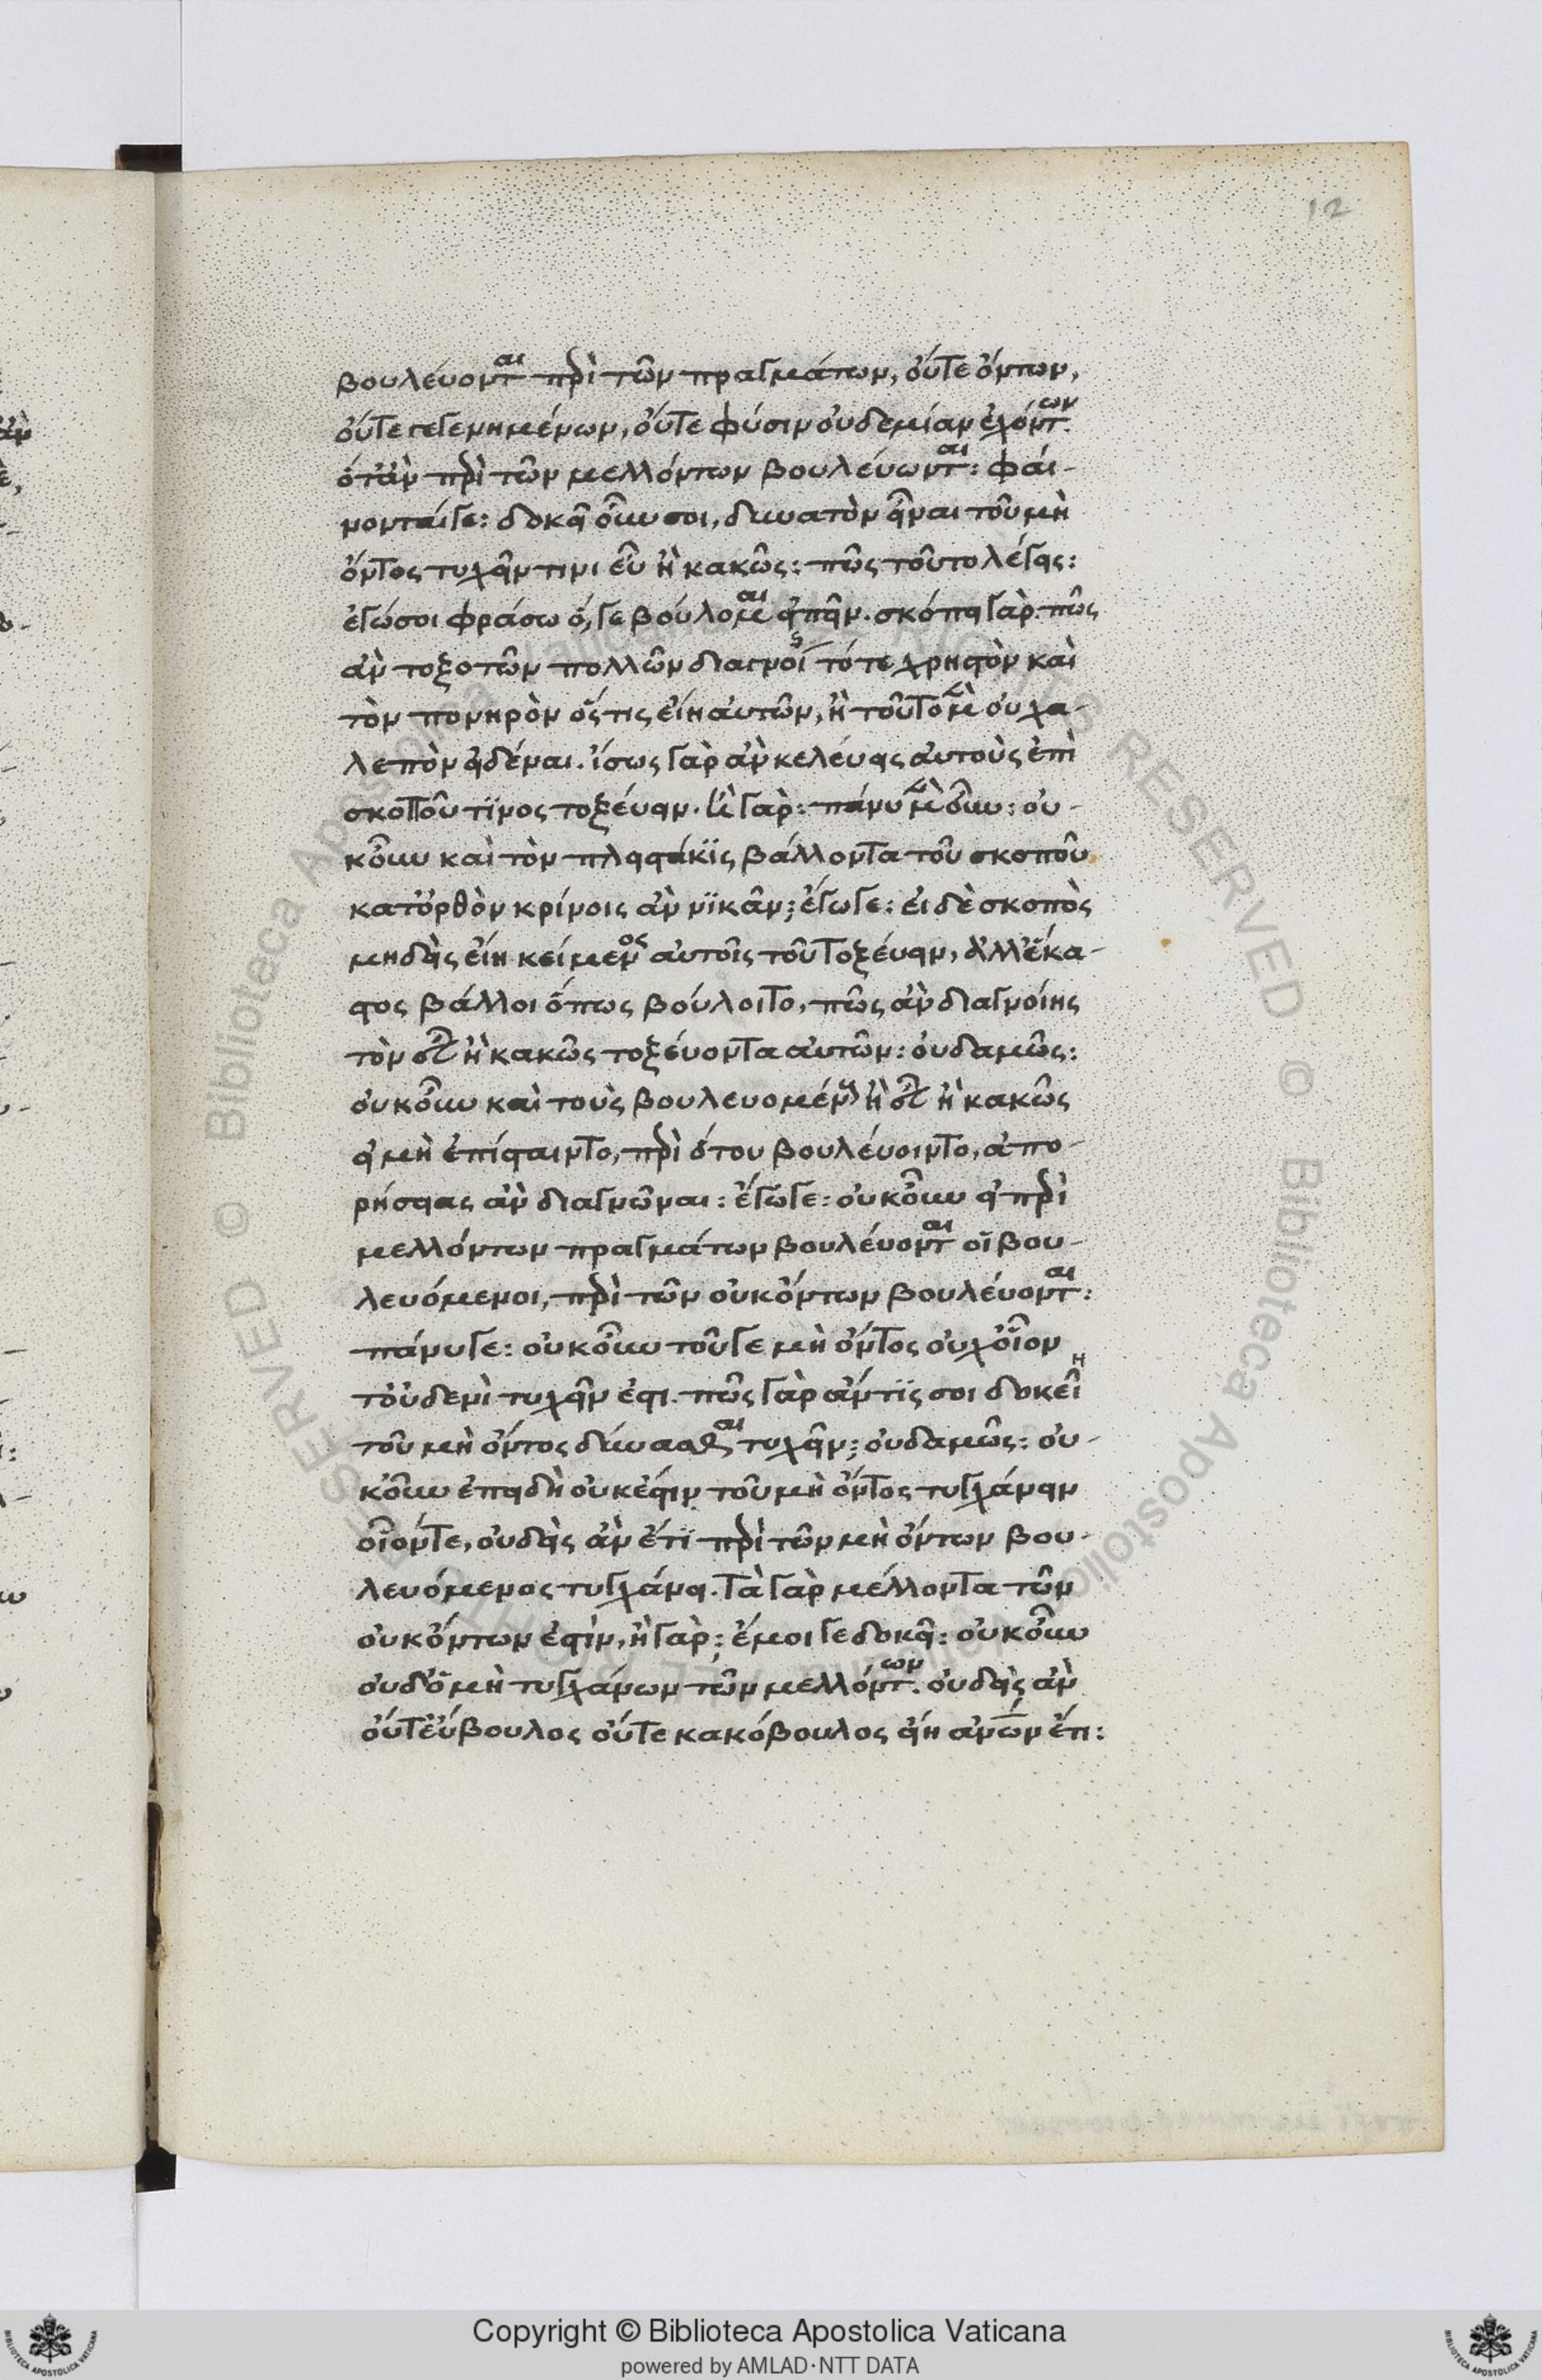 12
βουλεύονται περὶ τῶν πραγμάτων, οὔτε ὄντων,
οὔτε γεγενημένων, οὔτε φύσιν οὐδεμίαν ἐχόντων.
ὅτἂν περὶ τῶν μελλόντων βουλεύωνται: φαί-
νονταίγε: δοκεῖ οὖν σοι, δυνατὸν εἶναι τοῦ μὴ
ὄντος τυχεῖν τινι εὖ ἢ κακῶς: πῶς τοῦτο λέγεις:
ἐγώ σοι φράσω ὅ, γε βούλομαι εἰπεῖν. σκόπει γὰρ. πῶς
ἂν τοξοτῶν πολλῶν διαγνοίης τότε χρηστὸν καὶ
τὸν πονηρὸν ὅς τις εἴη αὐτῶν, ἢ τοῦτο μὲν οὐ χα-
λεπὸν εἰδέναι. ἴσως γὰρ ἂν κελεύεις αὐτοὺς ἐπὶ
σκοποῦ τινος τοξεύειν. ἦ γὰρ: πάνυ μὲν οὖν: οὐ-
κοῦν καὶ τὸν πλειστάκις βάλλοντα τοῦ σκοποῦ
κατὀρθὸν κρίνοις ἂν νικᾶν; ἔγωγε: εἰ δὲ σκοπὸς
μηδεὶς εἴη κείμενος αὐτοῖς τοῦ τοξεύειν, ἀλλ' ἕκα-
στος βάλλοι ὅπως βούλοιτο, πῶς ἂν διαγνοίης
τὸν εὖ ἢ κακῶς τοξεύοντα αὐτῶν: οὐδαμῶς:
οὐκοῦν καὶ τοὺς βουλευομένους ἢ εὖ ἢ κακῶς
εἰ μὴ ἐπίσταιντο, περὶ ὅτου βουλεύοιντο, ἀπο-
ρήσειας ἂν διαγνῶναι: ἔγωγε: οὐκοῦν εἰ περὶ
μελλόντων πραγμάτων βουλεύονται οἱ βου-
λευόμενοι, περὶ τῶν οὐκ ὄντων βουλεύονται:
πάνυ γε: οὐκοῦν τοῦ γε μὴ ὄντος οὐχ οἷον
τ' οὐδενὶ τυχεῖν ἐστι. πῶς γὰρ ἄν τίς σοι δοκείη
τοῦ μὴ ὄντος δύνασθαι τυχεῖν; οὐδαμῶς: οὐ-
κοῦν ἐπειδὴ οὐκ ἔστιν τοῦ μὴ ὄντος τυγχάνειν
οἷόν τε, οὐδεὶς ἂν ἔτι περὶ τῶν μὴ ὄντων βου-
λευόμενος τυγχάνει. τὰ γὰρ μέλλοντα τῶν
οὐκ ὄντων ἐστὶν, ἢ γὰρ; ἔμοι γε δοκεῖ: οὐκοῦν
οὐδ' ὁ μὴ τυγχάνων τῶν μελλόντων. οὐδεὶς ἂν
οὔτ' εὔβουλος οὔτε κακόβουλος εἴη ἀνων ἔτι:
Copyright © Biblioteca Apostolica Vaticana
powered by AMLAD·NTT DATA